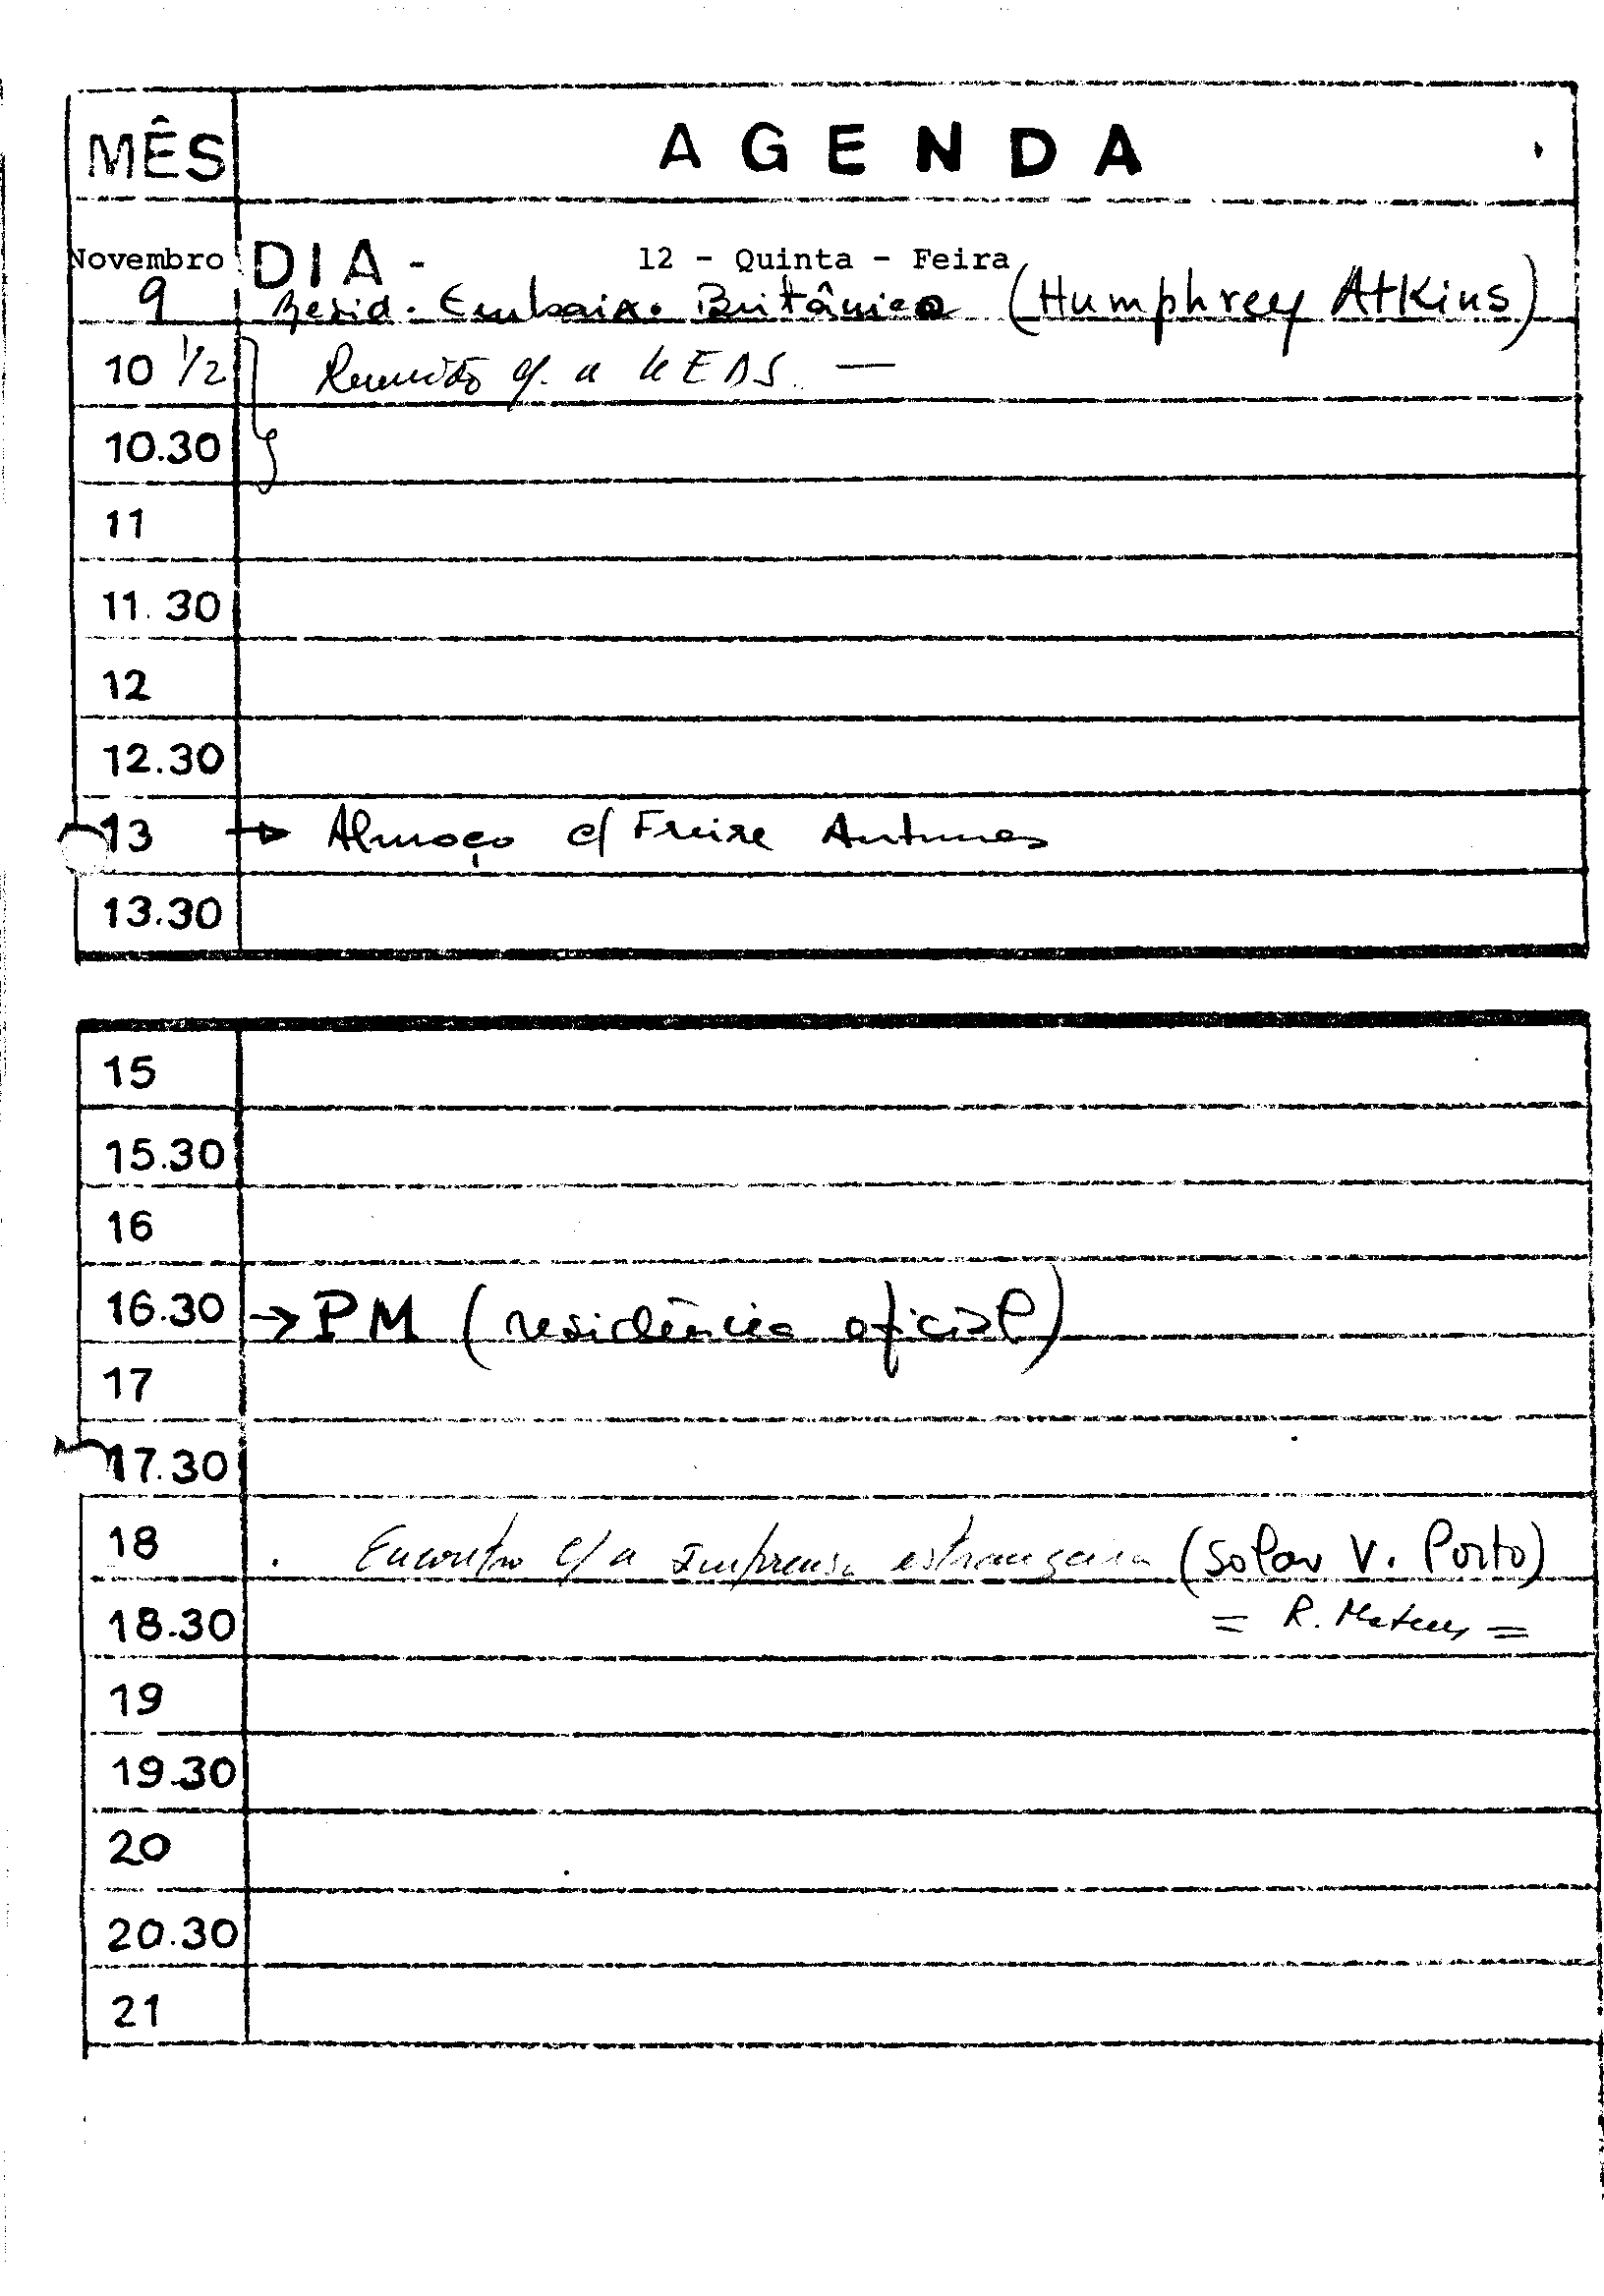 MÊS AGENDA
Novembro DIA - 12 - Quinta - Feira
9 Resid. Embaix. Britânica (Humphrey Atkins)
10 1/2 Reunião c/ a —
10.30
11
11.30
12
12.30
13 → Almoço c/ Freire Antunes
13.30
15
15.30
16
16.30 → PM (residência oficial)
17
17.30
18 . Encontro c/ a Imprensa estrangeira (Solar V. Porto)
18.30 = R. Mateus =
19
19.30
20
20.30
21